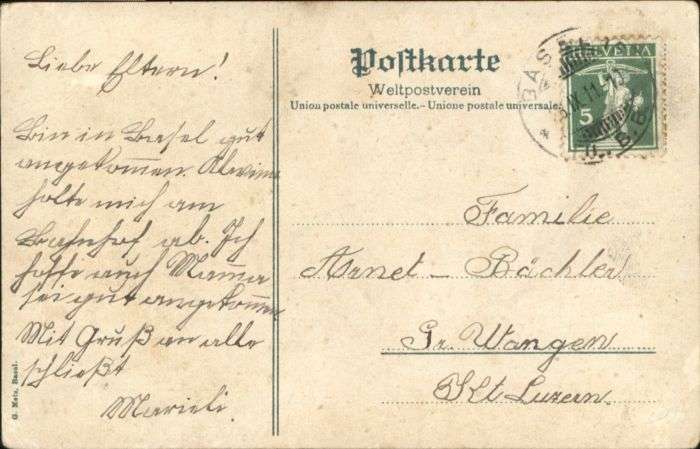 Liebe Eltern!
Bin in Basel gut
angekommen. Alwina
holte mich am
Bahnhof ab. Ich
hoffe auch Mama
sei gut angekommen
Mit Gruß an alle
schließt
Marieli.
G. Metz, Basel.
Postkarte
Weltpostverein
Union postale universelle.—Unione postale universale.
BASEL
IX.11.
HELVETIA
5
Familie
Arnet – Bächler
Gr. Wangen
Kt. Luzern.